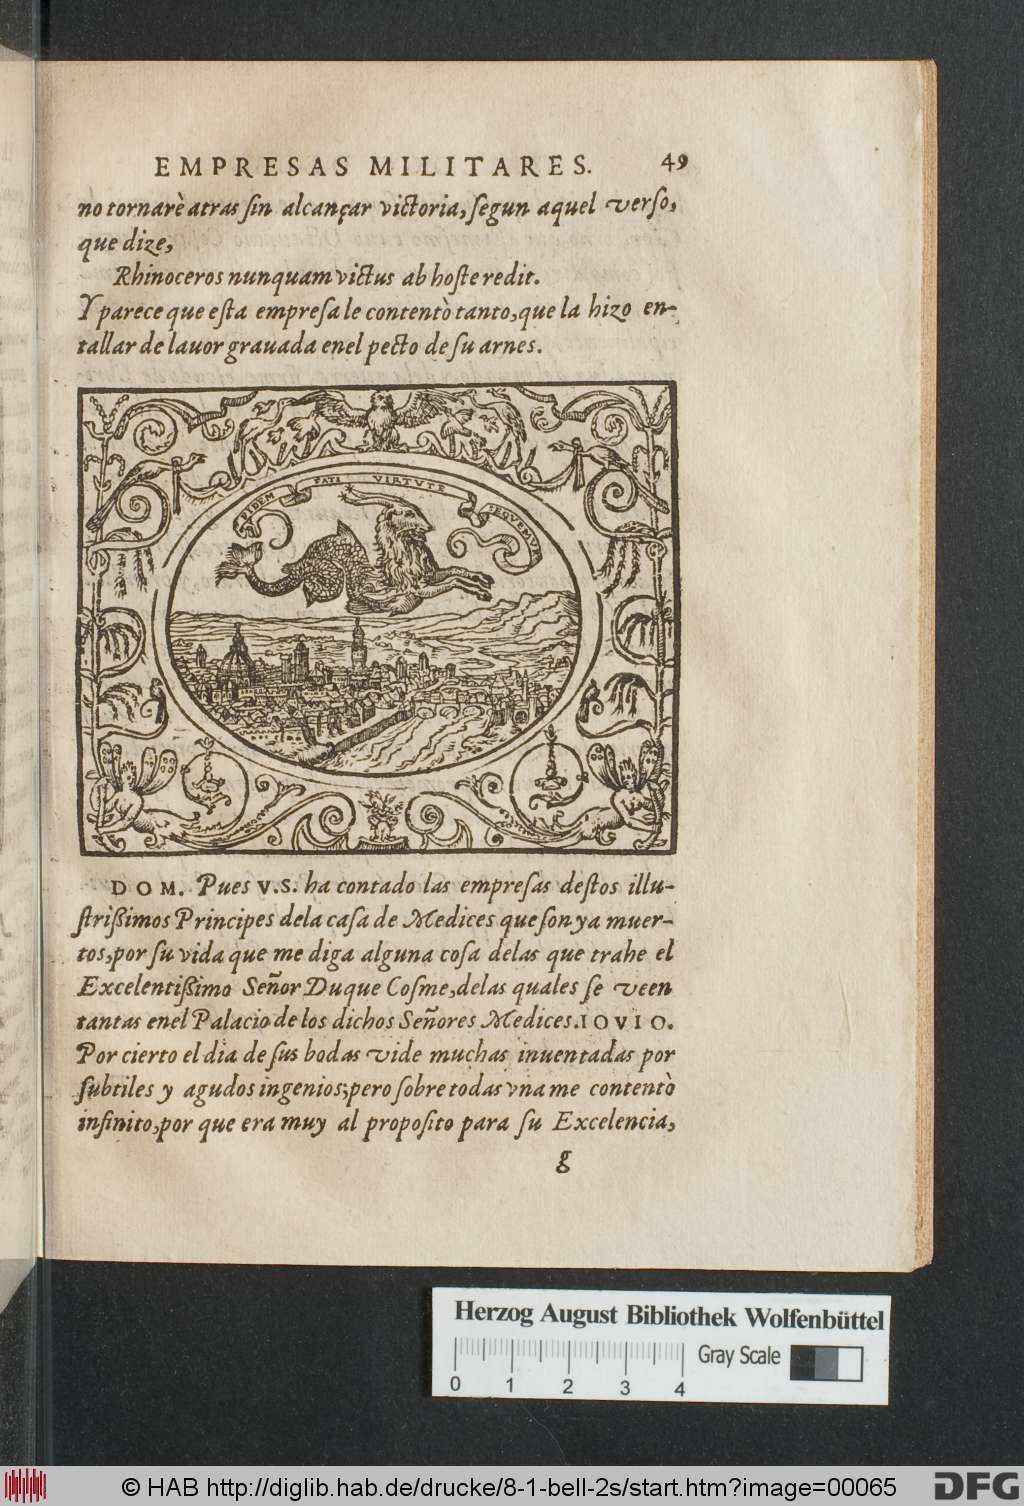 EMPRESAS MILITARES. 49
no tornarè atras sin alcançar victoria, segun aquel verso,
que dize,
Rhinoceros nunquam victus ab hoste redit.
Y parece que esta empresa le contentò tanto, que la hizo en-
tallar de lauor grauada enel pecto de su arnes.
FIDEM FATI VIRTVTE SEQVEMVR
DOM. Pues V.S. ha contado las empresas destos illu-
strißimos Principes dela casa de Medices que son ya muer-
tos, por su vida que me diga alguna cosa delas que trahe el
Excelentißimo Señor Duque Cosme, delas quales se veen
tantas enel Palacio de los dichos Señores Medices. IOVIO.
Por cierto el dia de sus bodas vide muchas inuentadas por
subtiles y agudos ingenios; pero sobre todas vna me contentò
infinito, por que era muy al proposito para su Excelencia,
g
Herzog August Bibliothek Wolfenbüttel
Gray Scale
0 1 2 3 4
© HAB http://diglib.hab.de/drucke/8-1-bell-2s/start.htm?image=00065
DFG